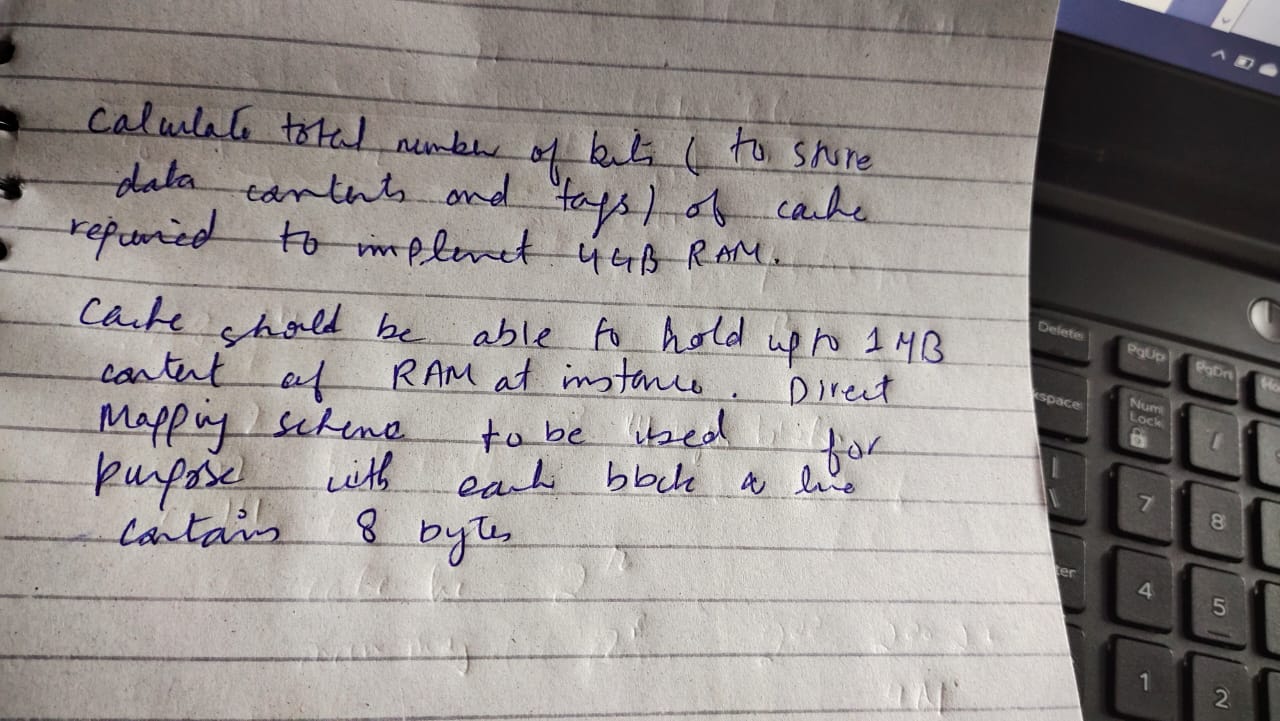 Calculate total number of bits ( to store
data contents and tags) of cache
required to implement 4GB RAM.
Cache should be able to hold up to 1 MB
content of RAM at instance. Direct
Mapping scheme to be used for
purpose with each block or line
contains 8 bytes
Delete
PgUp
PgDn
Num
Lock
/
7
8
4
5
1
2